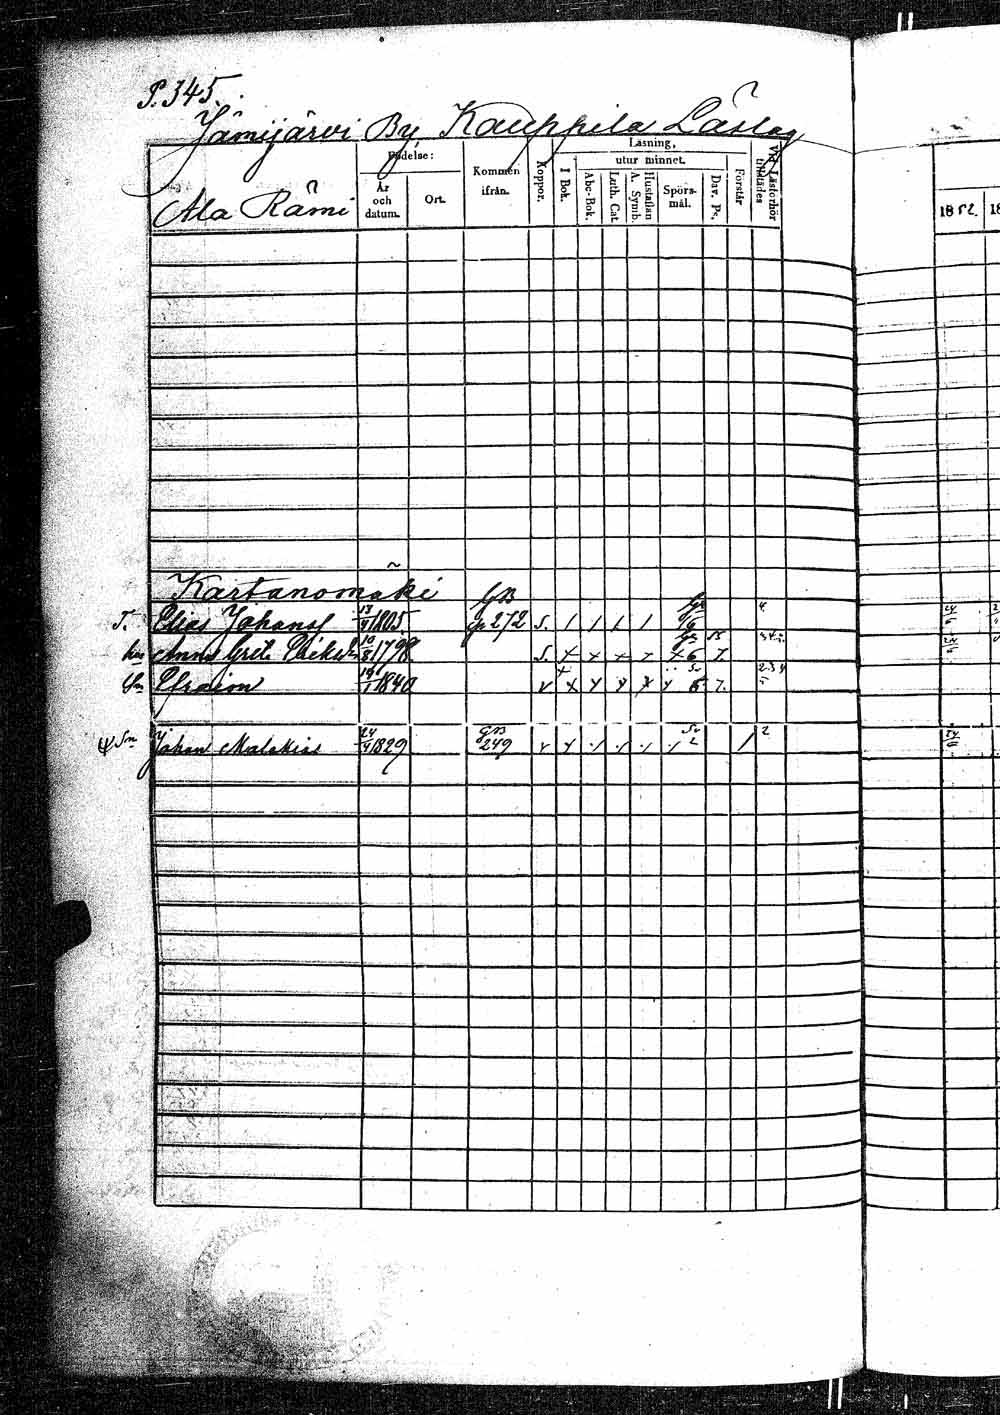 P. 345.
Jämijärvi By, Kauppila Läslag
Ala Rämi
Födelse:
År och datum.
Ort.
Kommen ifrån.
Koppor.
Läsning,
I Bok.
utur minnet.
Abc-Bok.
Luth. Cat.
Hustaflan A. Symb.
Spörs-mål.
Dav. Ps.
Förstår
Vid Läsförhör tillstädes
1852.
18
Kartanomäki
T. Elias Johansf 13/4 1805 GB p 272 S. / / / / Gr 6 4.
hus Anna Gret. 10/8 1798 S. x x x 6 7.
Sn Efraim 19/1 1840 v x 6 7. 2 3 4
Sn Johan Malakias 24/4 1829 GB 249 2 / 2